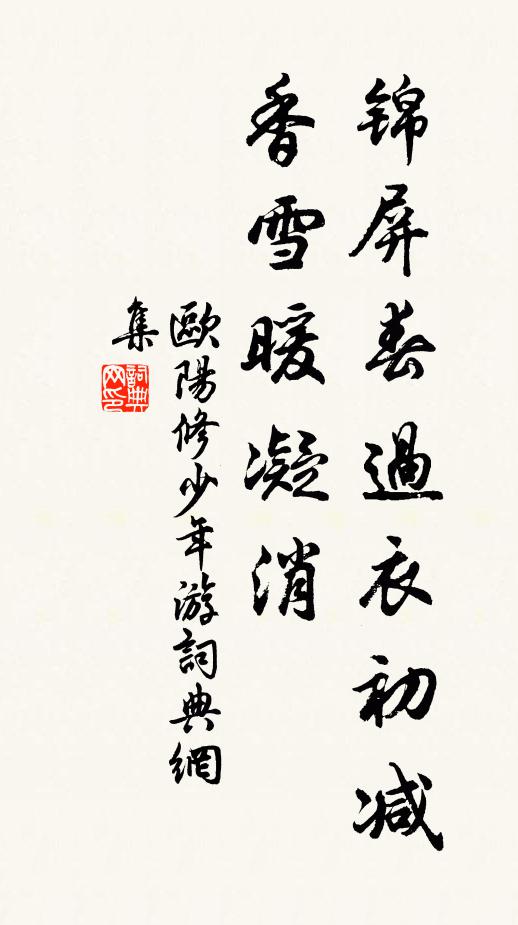 锦屏春過衣初减
香雪暖凝消
歐陽修少年游詞典網
集
詞典
网印